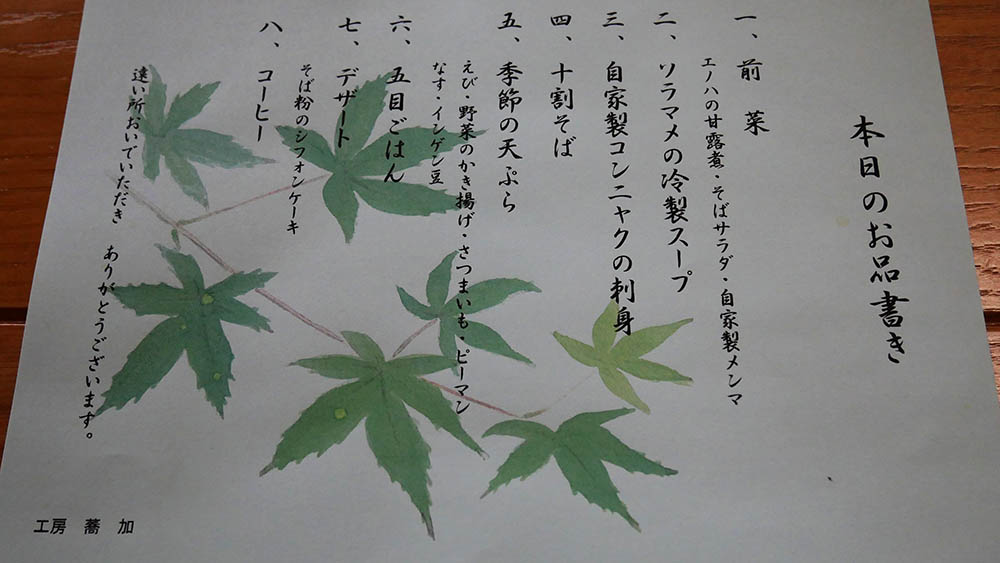 本日のお品書き
一、前菜
エノハの甘露煮・そばサラダ・自家製メンマ
二、ソラマメの冷製スープ
三、自家製コンニャクの刺身
四、十割そば
五、季節の天ぷら
えび・野菜のかき揚げ・さつまいも・ピーマン
なす・インゲン豆
六、五目ごはん
七、デザート
そば粉のシフォンケーキ
八、コーヒー
遠い所おいでいただき
ありがとうございます。
工房 蕎 加